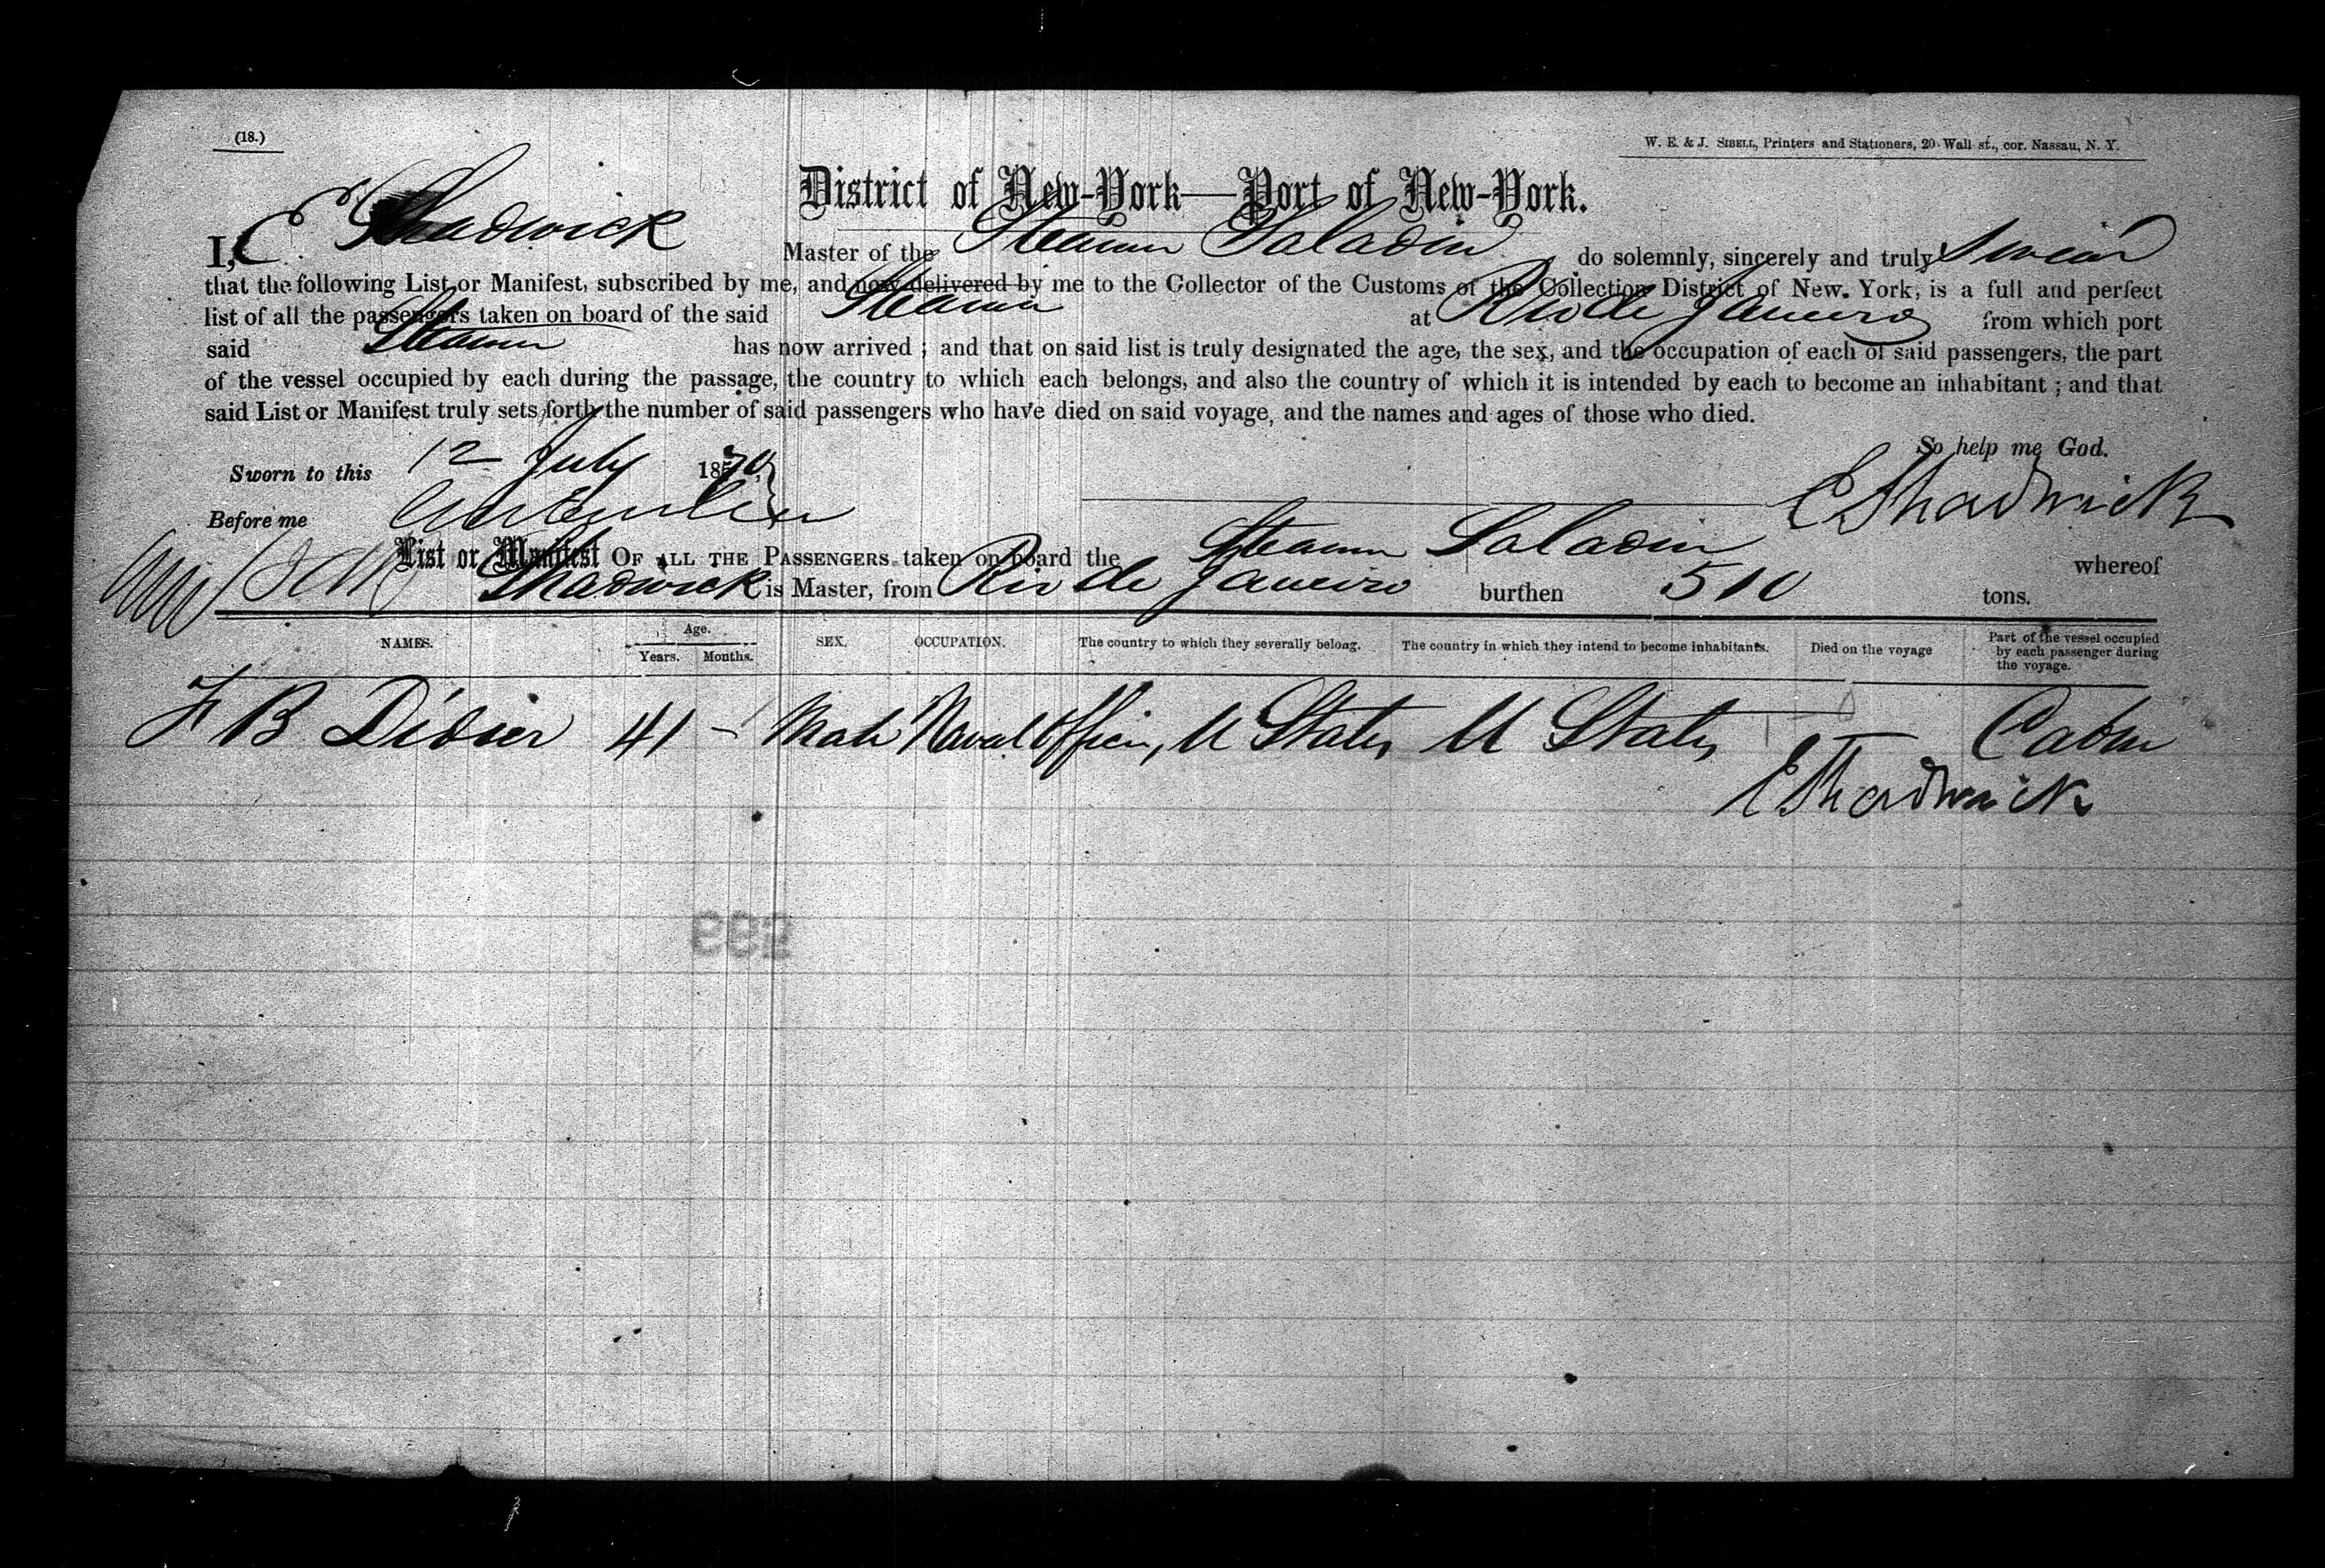 (18.)
W. E. & J. SIBELL, Printers and Stationers, 20 Wall st., cor. Nassau, N. Y.
District of New-York—Port of New-York.
I, E Shadwick Master of the Steamer Saladin do solemnly, sincerely and truly swear
that the following List or Manifest, subscribed by me, and now delivered by me to the Collector of the Customs of the Collection District of New. York, is a full and perfect
list of all the passengers taken on board of the said Steamer at Rio de Janeiro from which port
said Steamer has now arrived ; and that on said list is truly designated the age, the sex, and the occupation of each of said passengers, the part
of the vessel occupied by each during the passage, the country to which each belongs, and also the country of which it is intended by each to become an inhabitant ; and that
said List or Manifest truly sets forth the number of said passengers who have died on said voyage, and the names and ages of those who died.
So help me God.
Sworn to this 12 July 1870
Before me
E Shadwick
List or Manifest OF ALL THE PASSENGERS taken on board the Steamer Saladin whereof
Shadwick is Master, from Rio de Janeiro burthen 510 tons.
NAMES. Age. Years. Months. SEX. OCCUPATION. The country to which they severally belong. The country in which they intend to become inhabitants. Died on the voyage Part of the vessel occupied by each passenger during the voyage.
F B Didier 41 - Male Naval Officer, U States U States — Cabin
E Shadwick